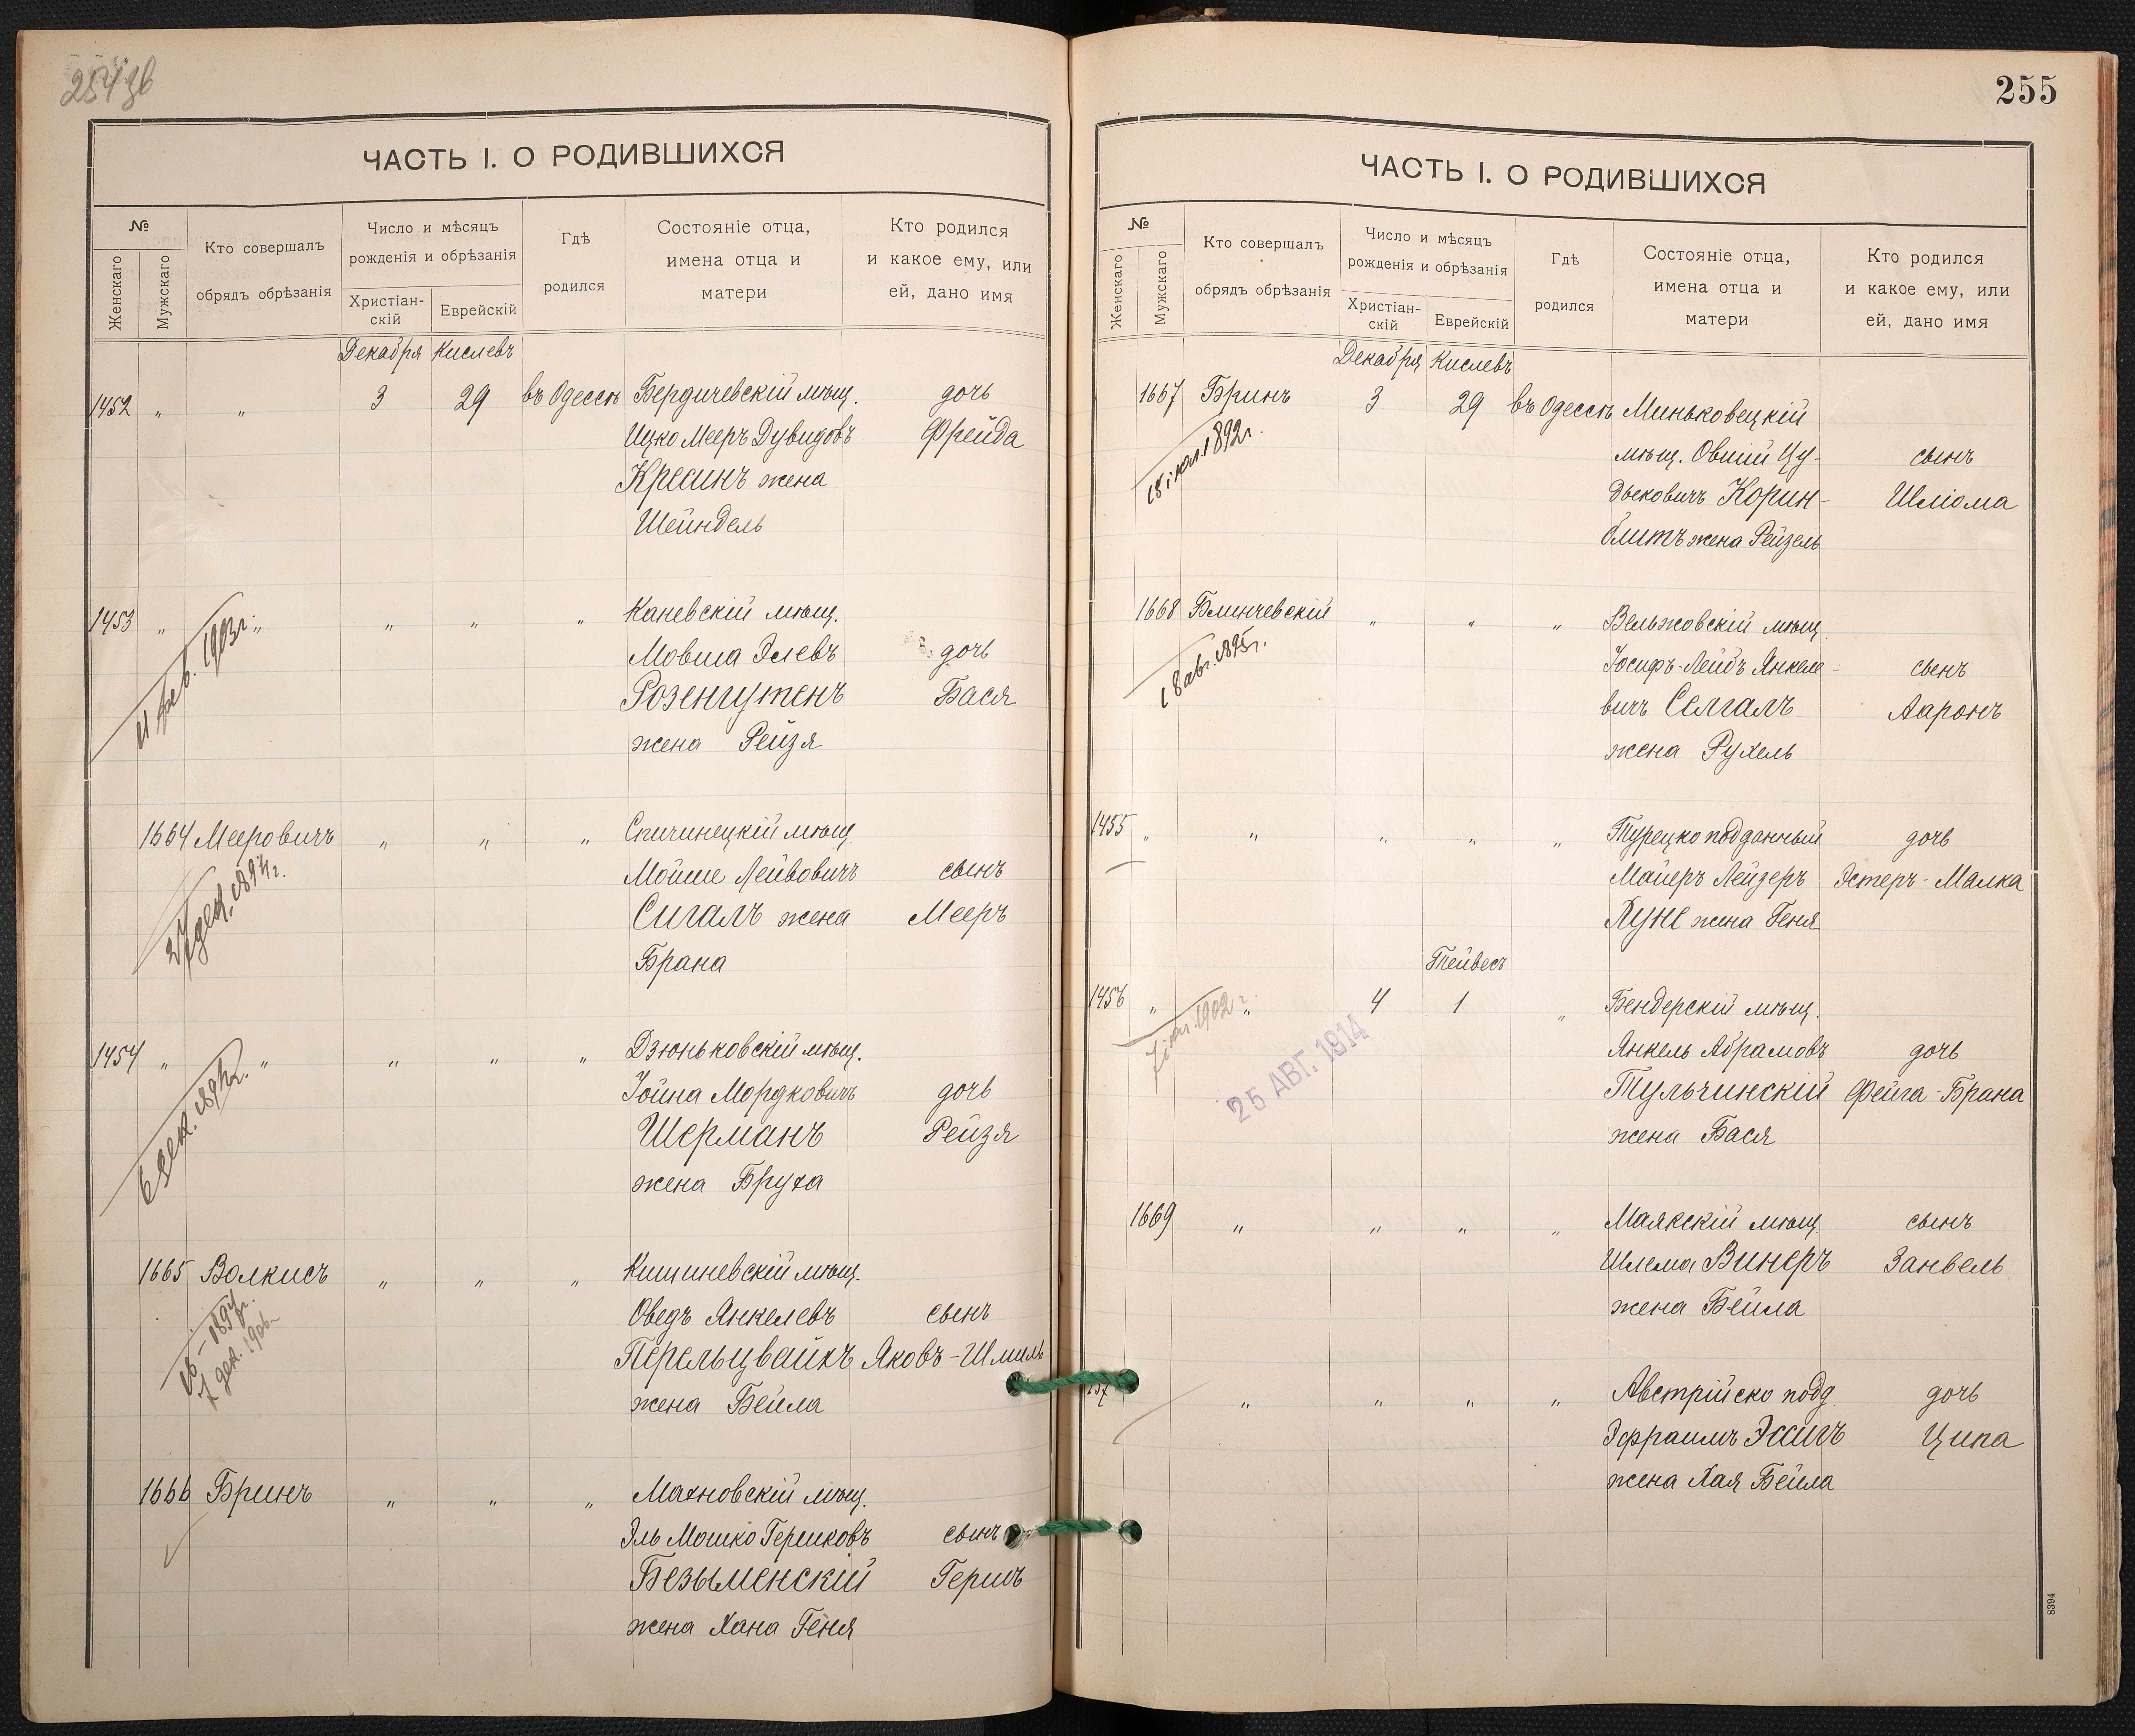 254 зв
ЧАСТЬ I. О РОДИВШИХСЯ
№
Женскаго
Мужскаго
Кто совершалъ
обрядъ обрѣзанія
Число и мѣсяцъ
рожденія и обрѣзанія
Христіан-
скій
Еврейскій
Гдѣ
родился
Состояніе отца,
имена отца и
матери
Кто родился
и какое ему, или
ей, дано имя
Декабря Кислевъ
1452 " " 3 29 въ Одессѣ Бердичевскій мѣщ. дочь
Ицко Мееръ Дувидовъ Фрейда
Кресинъ жена
Шейндель
1453 " " " " " Каневскій мѣщ.
11 фев. 1903 г.
Мовша Элевъ дочь
Розенгутенъ Бася
жена Рейзя
1664 Мееровичъ " " " Спичинецкій мѣщ.
27 дек. 1894 г.
Мойше Лейвовичъ сынъ
Сигалъ жена Мееръ
Брана
1454 " " " " " Дзюньковскій мѣщ.
6 дек. 1897 г.
Іойна Мордковичъ дочь
Шерманъ Рейзя
жена Бруха
1665 Волкисъ " " " Кишиневскій мѣщ.
7 дек. 1906
Оведъ Янкелевъ сынъ
Перельцвайхъ Яковъ-Шмиль
жена Бейла
1666 Бринъ " " " Махновскій мѣщ.
Эль Мошко Гершковъ сынъ
Безыменскій Гершъ
жена Хана Геня
255
ЧАСТЬ I. О РОДИВШИХСЯ
№
Женскаго
Мужскаго
Кто совершалъ
обрядъ обрѣзанія
Число и мѣсяцъ
рожденія и обрѣзанія
Христіан-
скій
Еврейскій
Гдѣ
родился
Состояніе отца,
имена отца и
матери
Кто родился
и какое ему, или
ей, дано имя
Декабря Кислевъ
1667 Бринъ 3 29 въ Одессѣ Миньковецкій
18 іюл. 1892 г.
мѣщ. Овшій Цу- сынъ
дыковичъ Корин- Шліома
блитъ жена Рейзель
1668 Блинчевскій " " " Вельжовскій мѣщ.
18 авг. 1895 г.
Іосифъ-Лейбъ Янкеле- сынъ
вичъ Селгалъ Ааронъ
жена Рухель
1455 " " " " " Турецко подданный дочь
Майеръ Лейзеръ Эстеръ-Малка
Куне жена Геня
Тейвесъ
1456 " " 4 1 " Бендерскій мѣщ.
7 іюл. 1902 г.
25 АВГ. 1914
Янкель Абрамовъ дочь
Тульчинскій Фейга-Брана
жена Бася
1669 " " " " Маякскій мѣщ. сынъ
Шлема Винеръ Занвель
жена Бейла
" " " " Австрійско подд. дочь
Эфраимъ Эссигъ Ципа
жена Хая Бейла
8394